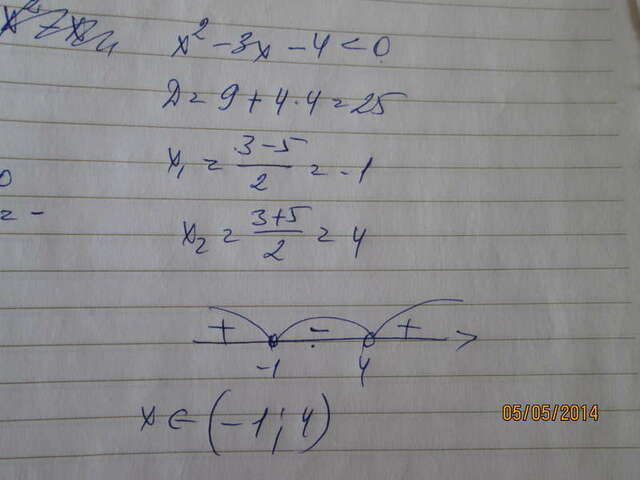 x² - 3x - 4 < 0
D = 9 + 4·4 = 25
x₁ = (3-5)/2 = -1
x₂ = (3+5)/2 = 4
+ - +
-1 4
x ∈ (-1; 4)
= -
05/05/2014